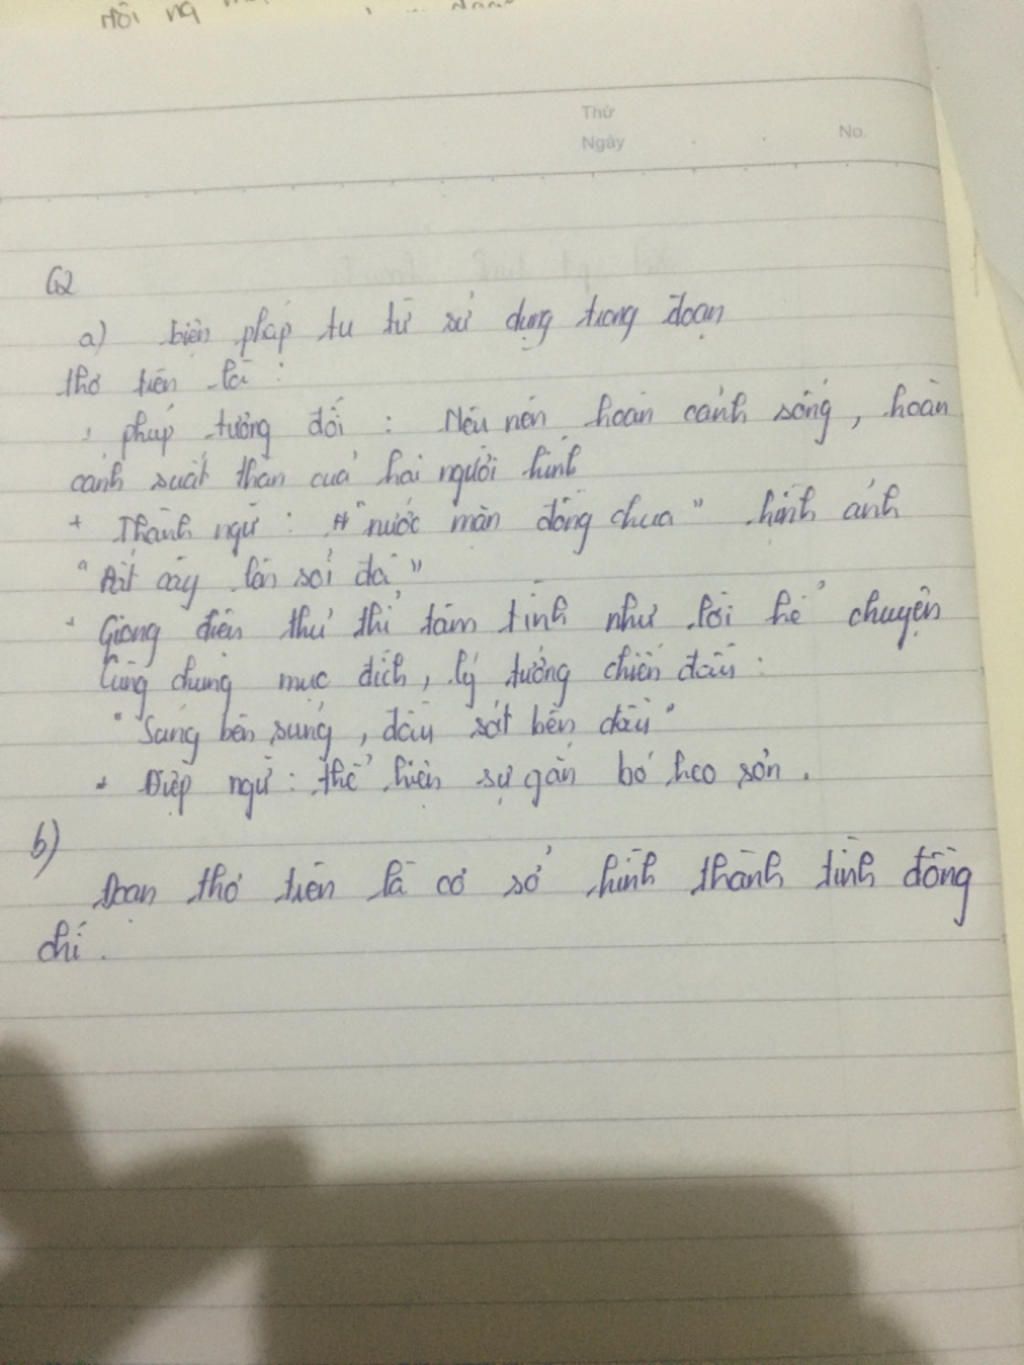 đôi ng
Thứ
Ngày No.
C2
a) biện pháp tu từ sử dụng trong đoạn
thơ trên là :
+ phép tương đối : Nêu nên hoàn cảnh sống, hoàn
cảnh suất thân của hai người lính
+ Thành ngữ : "nước mặn đồng chua" hình ảnh
"Đất cày lên sỏi đá"
+ Giọng điệu thủ thỉ tâm tình như lời kể chuyện
Cùng chung mục đích, lý tưởng chiến đấu :
"Súng bên súng, đầu sát bên đầu"
+ Điệp ngữ : thể hiện sự gắn bó keo sơn.
b)
Đoạn thơ trên là cơ sở hình thành tình đồng
chí.